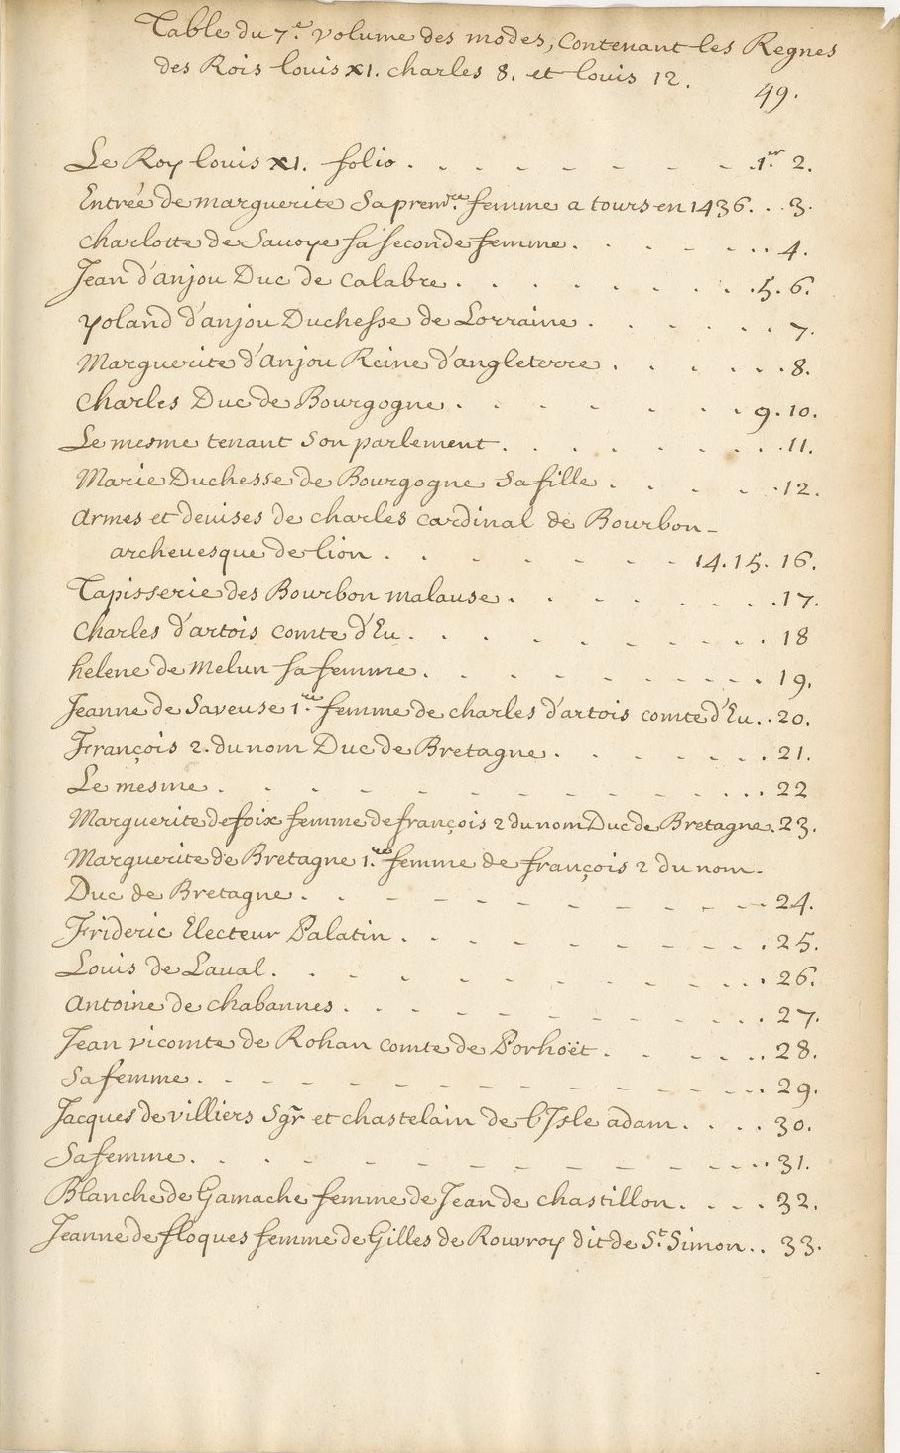 Table du 7.e volume des modes, Contenant les Regnes
des Rois louis XI. charles 8. et louis 12.
49.
Le Roy louis XI. folio . . . . . . . . 1er 2.
Entrée de marguerite sa premre. femme a tours en 1436. . . 3.
charlotte de Savoye sa seconde femme. . . . . . . 4.
Jean d'anjou Duc de calabre . . . . . . . . . 5. 6.
yoland d'anjou Duchesse de Lorraine . . . . . . . 7.
Marguerite d'Anjou Reine d'angleterre . . . . . . . 8.
Charles Duc de Bourgogne . . . . . . . . 9. 10.
Le mesme tenant son parlement . . . . . . . . . 11.
Marie Duchesse de Bourgogne sa fille . . . . . 12.
armes et devises de charles cardinal de Bourbon -
archevesque de lion . . . . . . . . 14. 15. 16.
Tapisserie des Bourbon malause . . . . . . . . 17.
Charles d'artois comte d'Eu . . . . . . . . . 18
helene de Melun sa femme . . . . . . . . . . 19.
Jeanne de Saveuse 1.re femme de charles d'artois comte d'Eu . . 20.
François 2. du nom Duc de Bretagne . . . . . . . 21.
Le mesme . . . . . . . . . . . . . . 22
Marguerite de foix femme de françois 2 du nom Duc de Bretagne. 23.
Marguerite de Bretagne 1.re femme de françois 2 du nom -
Duc de Bretagne . . . . . . . . . . . . 24.
Frideric Electeur Palatin . . . . . . . . . . 25.
Louis de Laval . . . . . . . . . . . . 26.
Antoine de chabannes . . . . . . . . . . . 27.
Jean vicomte de Rohan comte de Porhoët . . . . . . 28.
Sa femme . . . . . . . . . . . . . . . 29.
Jacques de villiers sgr et chastelain de l'Isle adam . . . . 30.
Sa femme . . . . . . . . . . . . . . . 31.
Blanche de Gamache femme de Jean de chastillon . . . . 32.
Jeanne de floques femme de Gilles de Rouvroy dit de St. Simon . . 33.